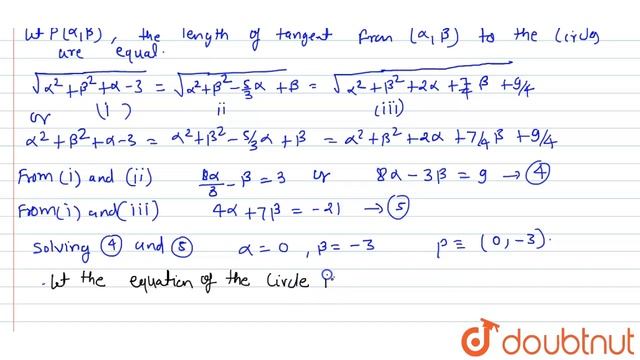 let P(α,β), the length of tangent from (α,β) to the circles
are equal.
√α²+β²+α-3 = √α²+β²-5/3 α+β = √α²+β²+2α+7/4 β+9/4
or (i) ii (iii)
α²+β²+α-3 = α²+β²-5/3α+β = α²+β²+2α+7/4β+9/4
From (i) and (ii) 8α/3 - β = 3 or 8α-3β = 9 → ④
From (i) and (iii) 4α+7β = -21 → ⑤
Solving ④ and ⑤ α=0, β=-3 P ≡ (0,-3).
. let the equation of the circle
doubtnut